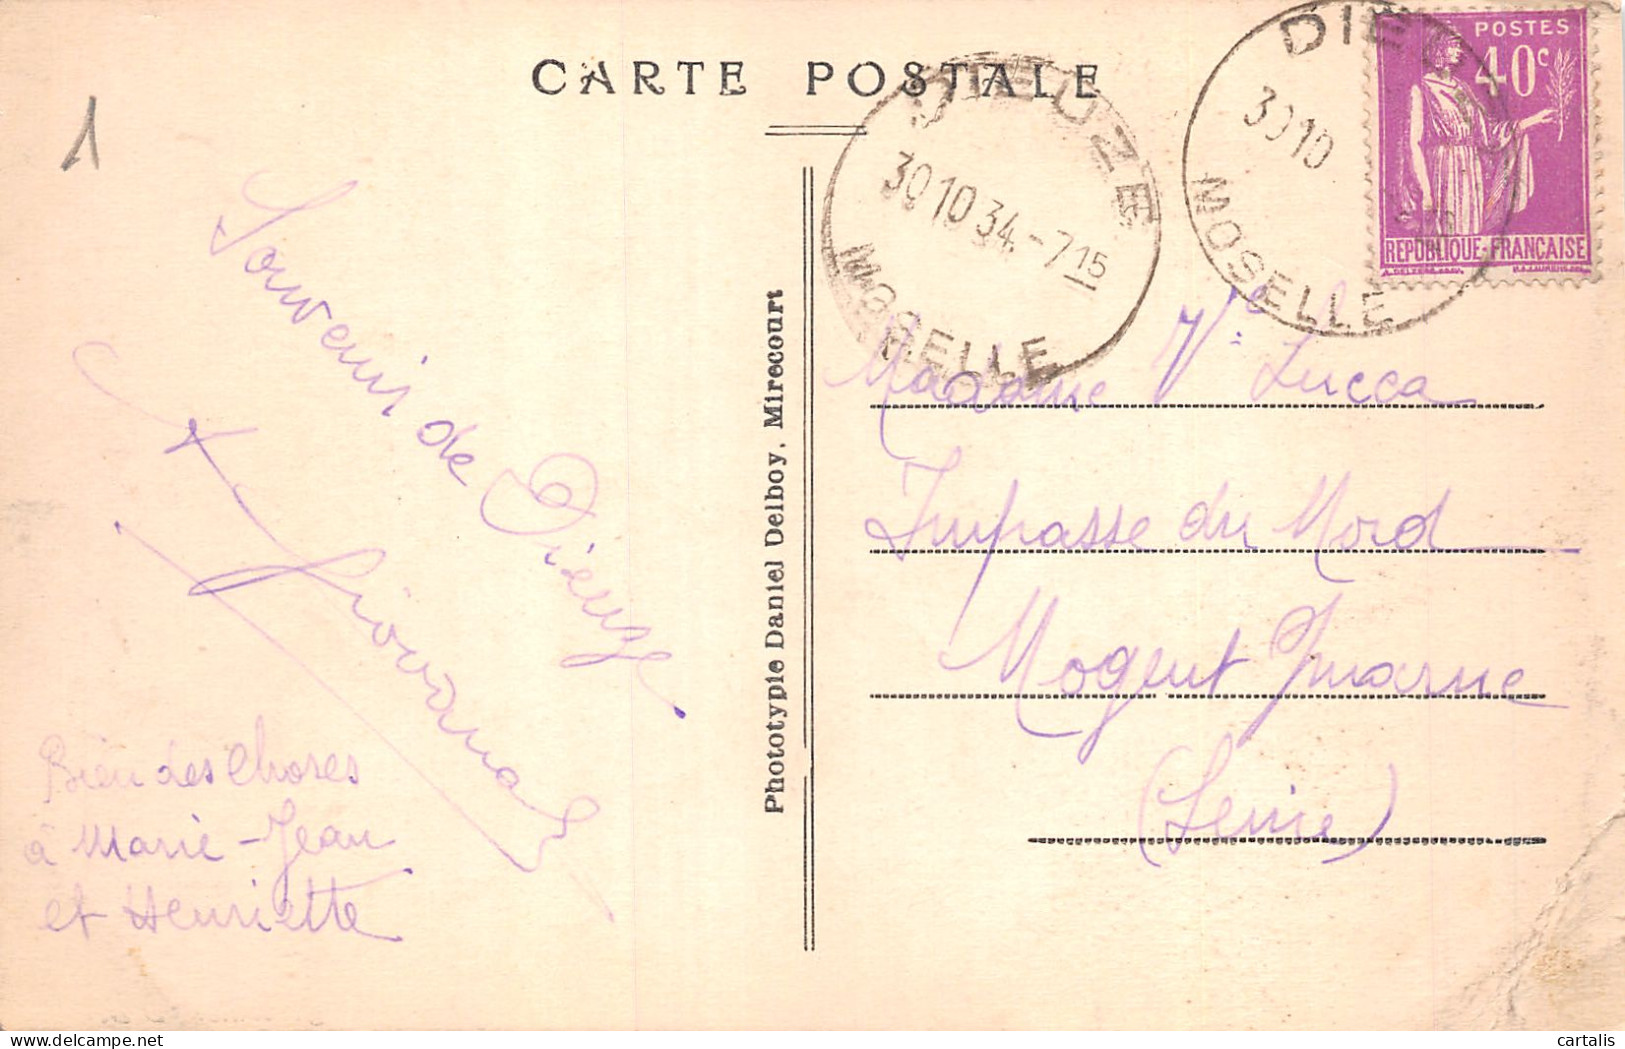 CARTE POSTALE
1
DIEUZE
30 10 34 - 7 15
MOSELLE
DIEUZE
30 10
MOSELLE
POSTES
40c
REPUBLIQUE FRANÇAISE
Souvenir de Dieuze
Giovanna
Bien des choses
à Marie-Jean
et Henriette
Phototypie Daniel Delboy, Mirecourt
Madame Ve Lucca
Impasse du Nord
Nogent s/marne
(Seine)
cartalis
delcampe.net